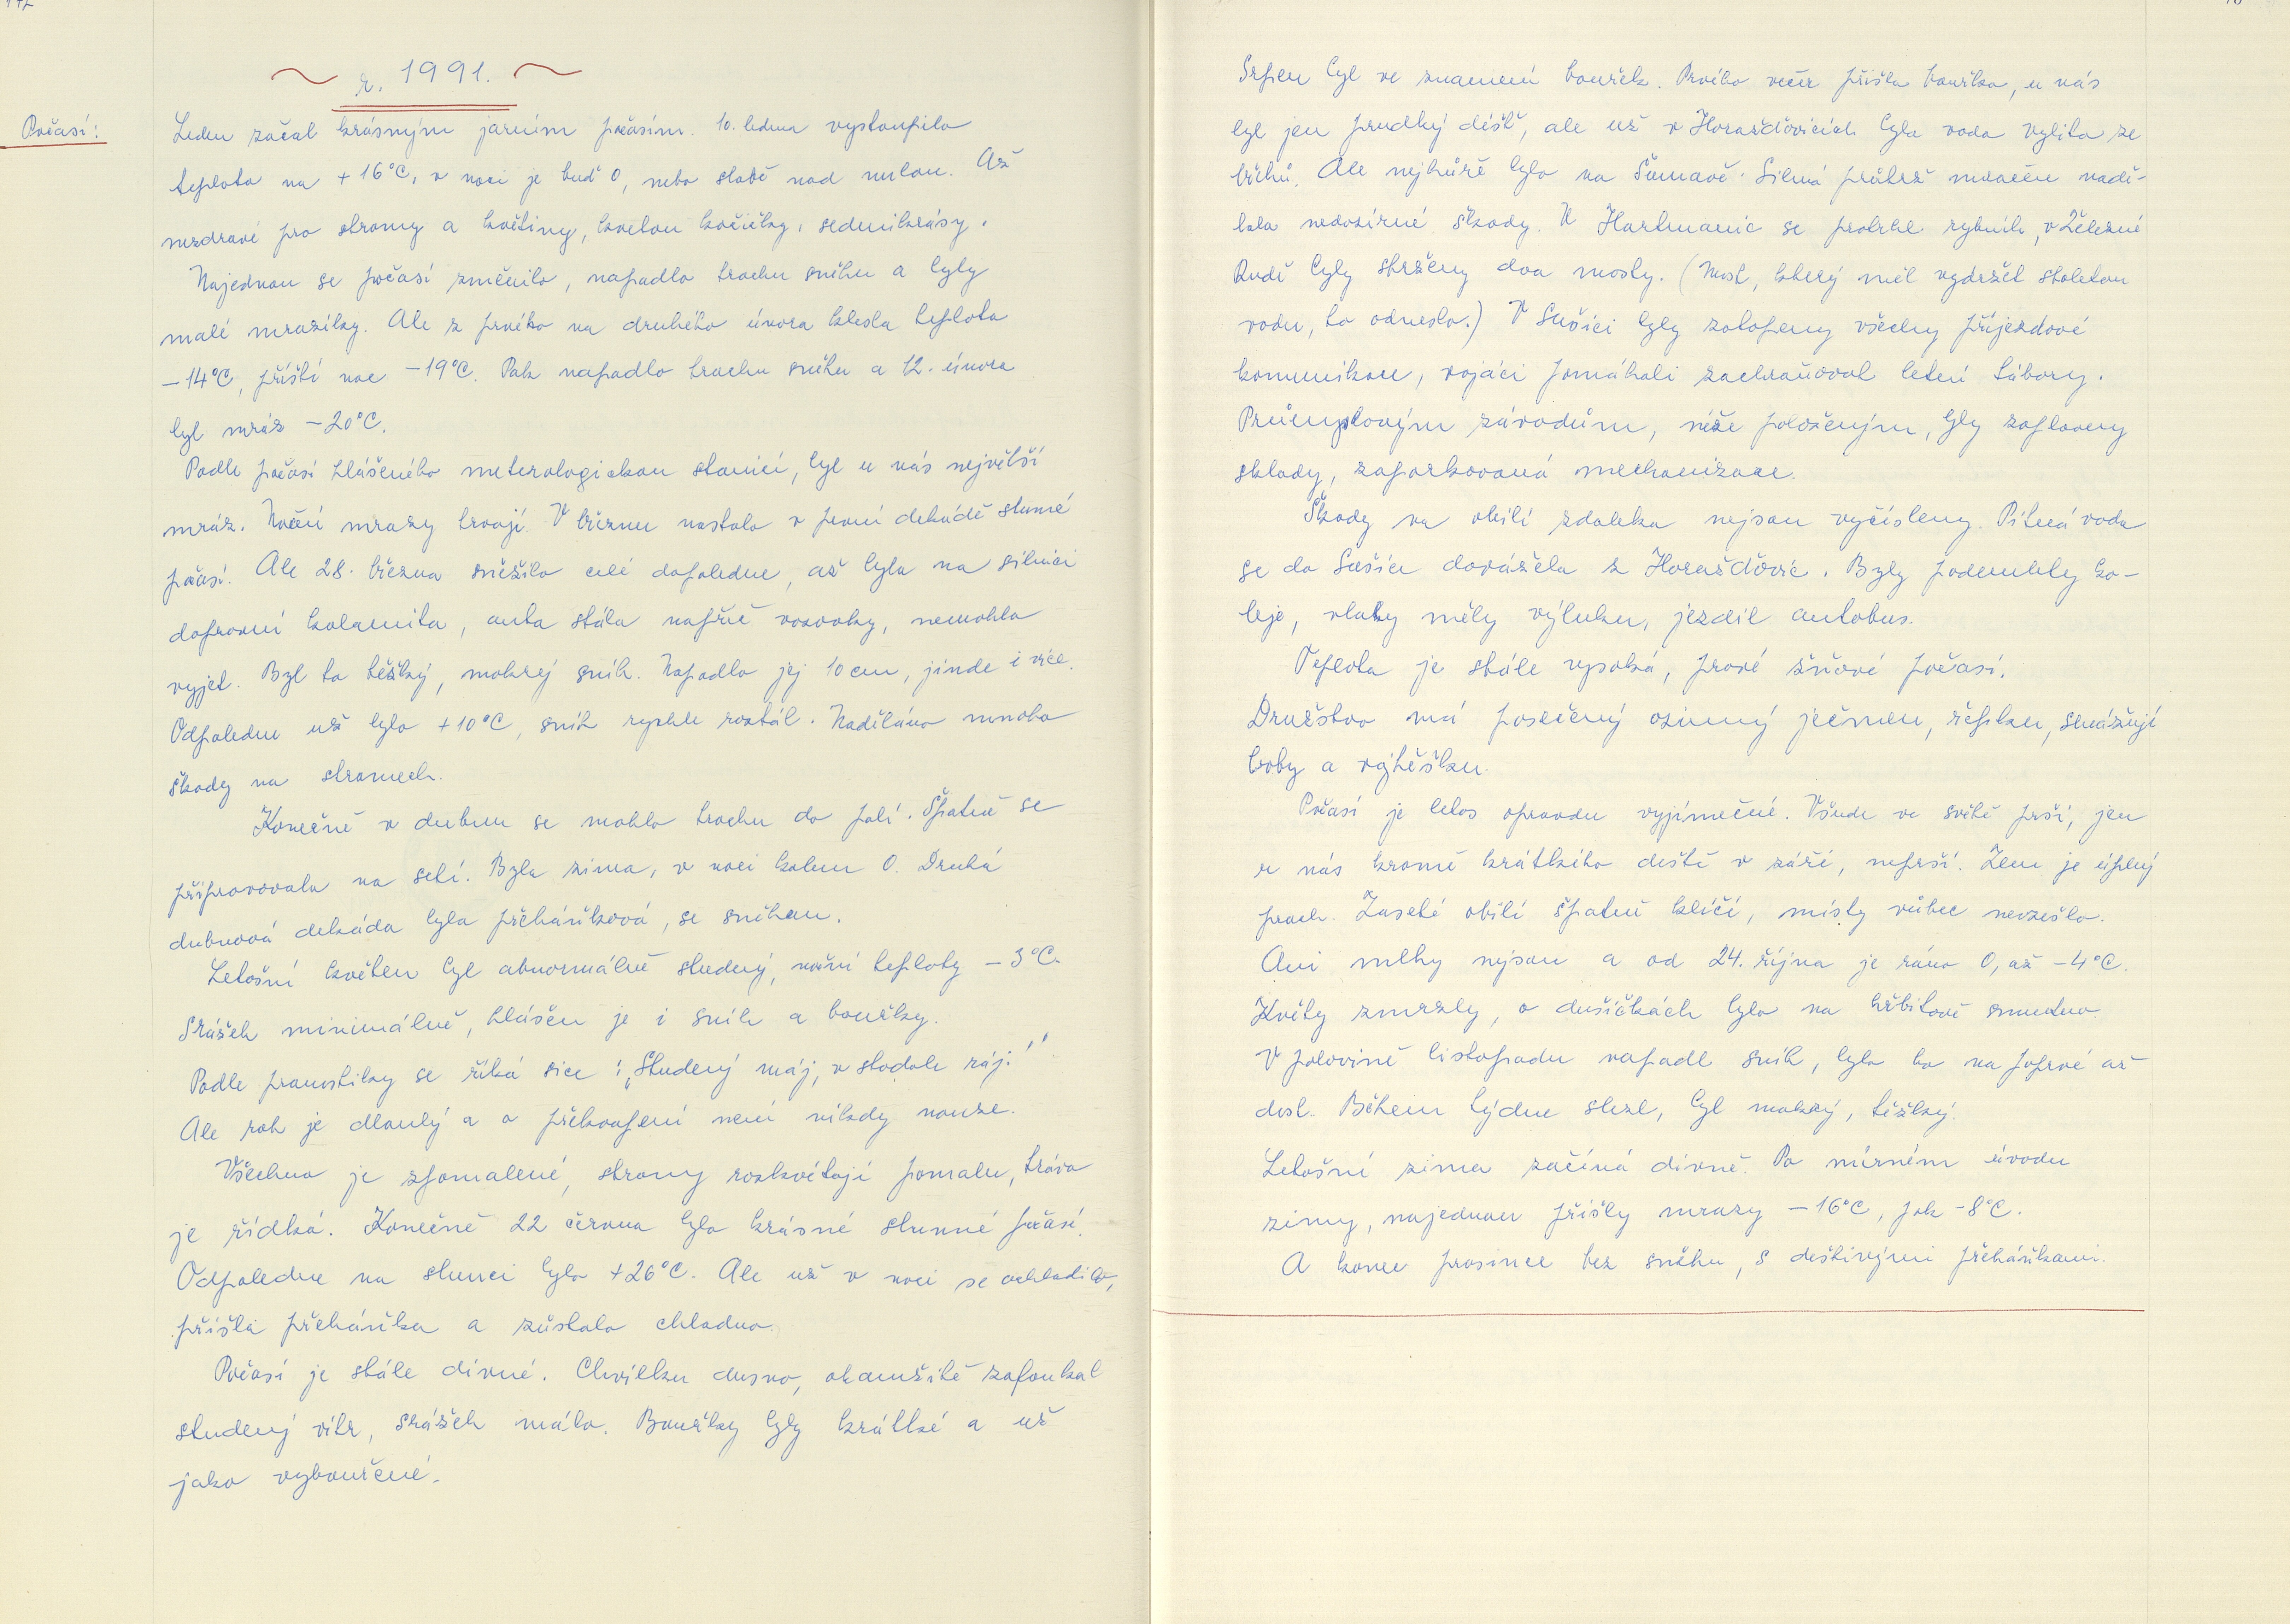 r. 1991.
Počasí:
Leden začal krásným jarním počasím. 10. ledna vystoupila
teplota na +16°C, v noci je buď 0, nebo slabě nad nulou. Až
nezdravé pro stromy a květiny, kvetou kočičky, sedmikrásy.
Najednou se počasí změnilo, napadlo trochu sněhu a byly
malé mrazíky. Ale z prvého na druhého února klesla teplota
-14°C, příští noc -19°C. Pak napadlo trochu sněhu a 12. února
byl mráz -20°C.
Podle počasí hlášeného meterologickou stanicí, byl u nás největší
mráz. Noční mrazy trvají. V březnu nastalo v první dekádě slunné
počasí. Ale 28. března sněžilo celé dopoledne, až byla na silnici
dopravní kalamita, auta stála napříč vozovky, nemohla
vyjet. Byl to těžký, mokrej sníh. Napadlo jej 10 cm, jinde i více.
Odpoledne už bylo +10°C, sníh rychle roztál. Naděláno mnoho
škody na stromech.
Konečně v dubnu se mohlo trochu do polí. Špatně se
připravovala na setí. Byla zima, v noci kolem 0. Druhá
dubnová dekáda byla přeháňková, se sněhem.
Letošní květen byl abnormálně studený, noční teploty -3°C.
Srážek minimálně, hlášen je i sníh a bouřky.
Podle pranostiky se říká sice: „Studený máj, v stodole ráj."
Ale rok je dlouhý a o překvapení není nikdy nouze.
Všechno je zpomalené, stromy rozkvétají pomalu, tráva
je řídká. Konečně 22 června bylo krásné slunné počasí.
Odpoledne na slunci bylo +26°C. Ale už v noci se ochladilo,
přišla přeháňka a zůstalo chladno.
Počasí je stále divné. Chvilku dusno, okamžitě zafoukal
studený vítr, srážek málo. Bouřky byly krátké a už
jako vybouřené.
Srpen byl ve znamení bouřek. Prvého večer přišla bouřka, u nás
byl jen prudký déšť, ale už v Horažďovicích byla voda vylita ze
břehů. Ale nejhůře bylo na Šumavě. Silná průtrž mračen nadě-
lala nedozírné škody. U Hartmanic se protrhl rybník, v Železné
Rudě byly strženy dva mosty. (Most, který měl vydržet stoletou
vodu, to odneslo.) V Sušici byly zatopeny všechny příjezdové
komunikace, vojáci pomáhali zachraňovat letní tábory.
Průmyslovým závodům, níže položeným, byly zaplaveny
sklady, zaparkovaná mechanizace.
Škody na obilí zdaleka nejsou vyčísleny. Pitná voda
se do Sušice dovážela z Horažďovic. Byly podemlety ko-
leje, vlaky měly výluku, jezdil autobus.
Teplota je stále vysoká, pravé žňové počasí.
Družstvo má posečený ozimý ječmen, řepku, smážují
boby a vojtěšku.
Počasí je letos opravdu vyjímečné. Všude ve světě prší, jen
u nás kromě krátkého deště v září, neprší. Zem je úplný
prach. Zaseté obilí špatně klíčí, místy vůbec nevzešlo.
Ani mlhy nejsou a od 24. října je ráno 0, až -4°C.
Květy zmrzly, o dušičkách bylo na hřbitově smutno.
V polovině listopadu napadl sníh, bylo ho na poprvé až
dost. Během týdne slezl, byl mokrý, těžký.
Letošní zima začíná divně. Po mírném úvodu
zimy, najednou přišly mrazy -16°C, pak -8°C.
A konec prosince bez sněhu, s deštivými přeháňkami.